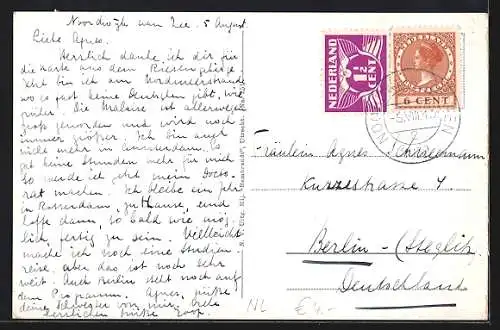 Noordwijk aan Zee. 5 August.
Liebe Agnes.
Herzlich danke ich dir für
die Karte aus dem Riesengebirge.
Jetzt bin ich am Nordmeerstrande
wo es fast keine Deutschen gibt, wie
früher. Die Malaise ist allerwegen
gross geworden und wird noch
immer grösser. Ich bin auch
nicht mehr in Amsterdam. Es
gab keine Stunden mehr für mich
So werde ich erst mein Docto-
rat machen. Ich bleibe ein Jahr
in Rotterdam, zu Hause, und
hoffe dann, so bald wie mög-
lich, fertig zu sein. Vielleicht
mache ich noch eine Studien-
reise, aber das ist noch sehr
weit. Auch Berlin steht noch auf
dem Programm. Agnes, grüsse
deine Schwester von mir, viele
herzlichen Grüsse Koop.
NEDERLAND
1½
CENT
NEDERLAND
6 CENT
Fräulein Agnes
Kurzestrasse 4
Berlin - (Steglitz)
Deutschland
NL € 4.-